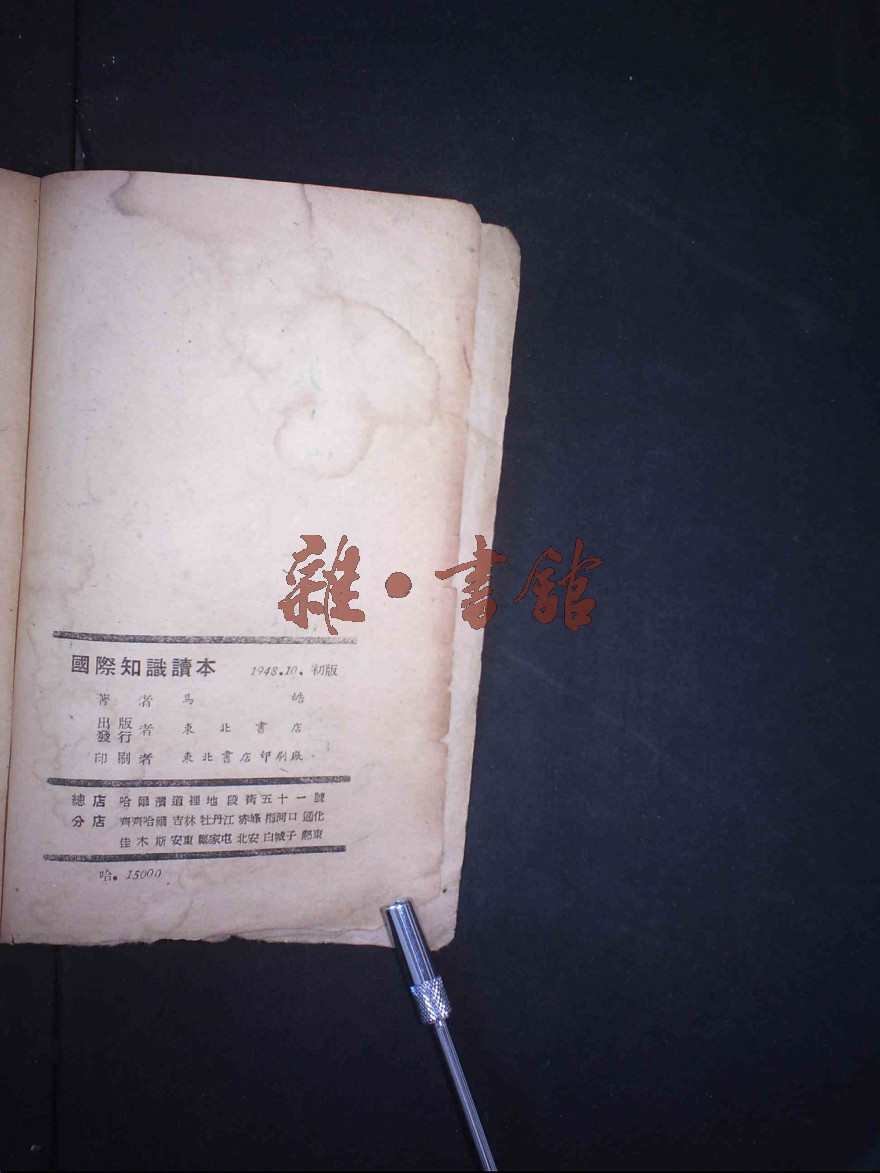 雜·書館
國際知識讀本 1948.10. 初版
著者 馬皓
出版發行者 東北書店
印刷者 東北書店印刷廠
總店 哈爾濱道裡地段街五十一號
分店 齊齊哈爾 吉林 牡丹江 赤峰 梅河口 通化
佳木斯 安東 鄭家屯 北安 白城子 熱東
哈. 15000